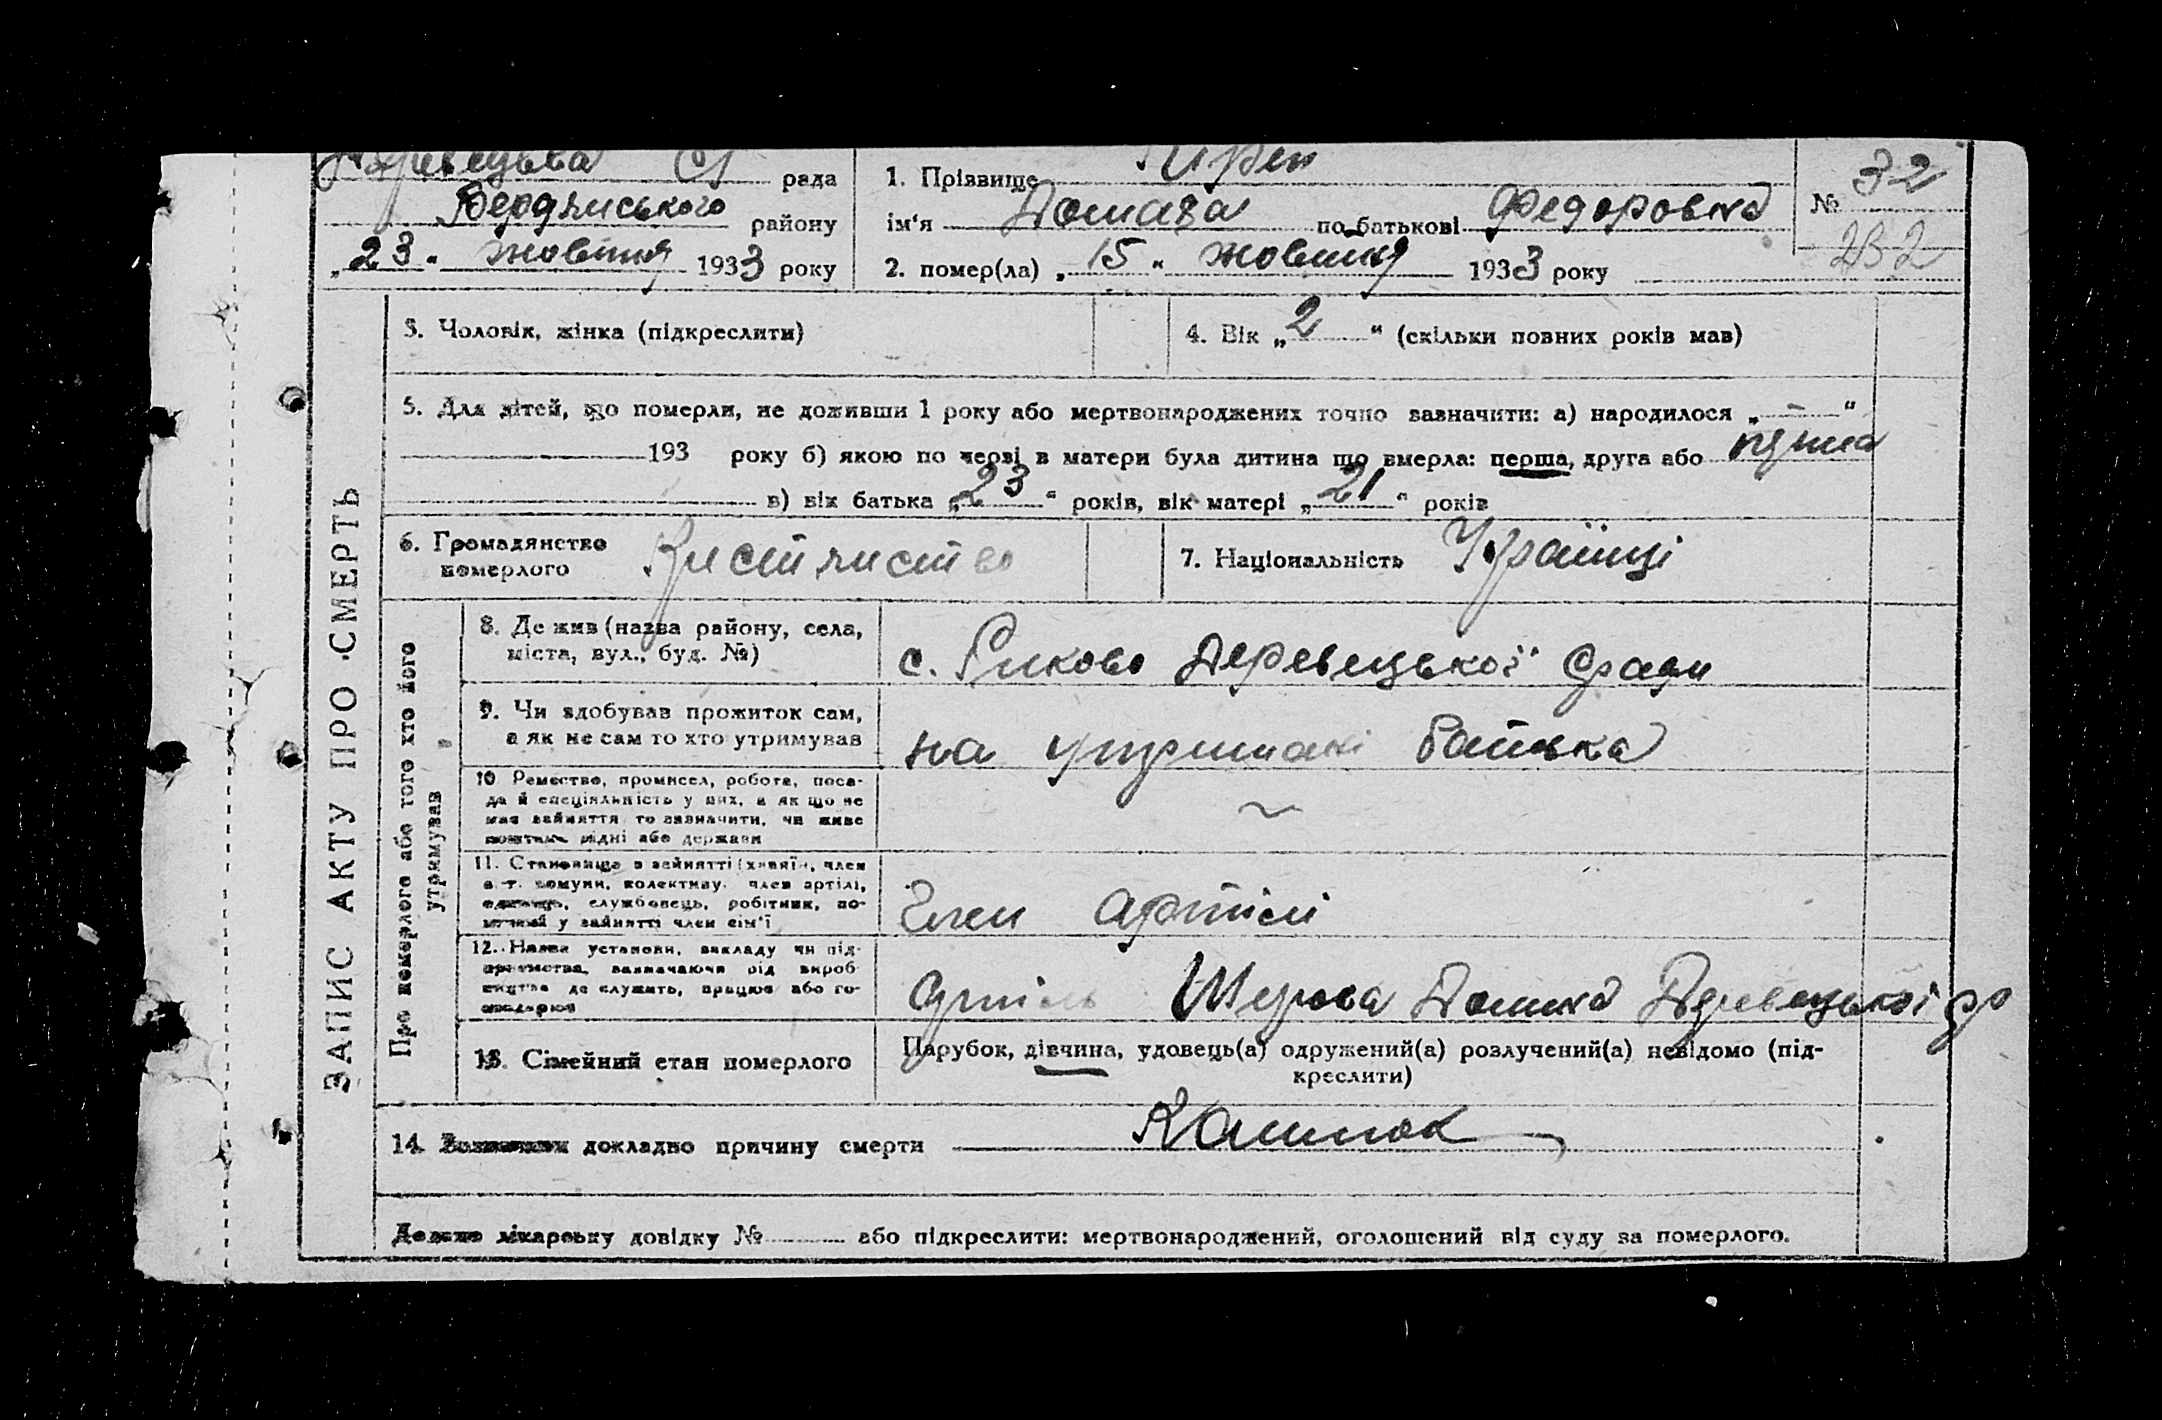 рада 1. Прізвище № 32
Бердянського району ім'я Домаха по батькові Федоровна 232
„23“ жовтня 1933 року 2. помер(ла) „15“ жовтня 1933 року
ЗАПИС АКТУ ПРО СМЕРТЬ
3. Чоловік, жінка (підкреслити) 4. Вік „2“ (скільки повних років мав)
5. Для дітей, що померли, не доживши 1 року або мертвонароджених точно зазначити: а) народилося „-“
193 року б) якою по черзі в матери була дитина що вмерла: перша, друга або
в) вік батька „23“ років, вік матері „21“ років
6. Громадянство
померлого
7. Національність Українці
Про померлого або того хто його
утримував
8. Де жив (назва району, села,
міста, вул., буд. №)
с. Риково Деревецької с/ради
9. Чи здобував прожиток сам,
а як не сам то хто утримував
на утриманні батька
10 Ремество, промисел, робота, поса-
да й спеціяльність у них, а як що не
має зайняття то зазначити, чи живе
коштом рідні або держави
11. Становище в зайнятті (хазяїн, член
с.-г. комуни, колективу, член артілі,
одинець, службовець, робітник, по-
мічний у зайнятті член сім'ї
Член артілі
12. Назва установи, закладу чи під-
приємства, зазначаючи рід вироб-
ництва де служить, працює або го-
сподарює
Артіль Деревецької с/р
13. Сімейний стан померлого
Парубок, дівчина, удовець(а) одружений(а) розлучений(а) невідомо (під-
креслити)
14. Зазначити докладно причину смерти Кашлюк
Додано лікарську довідку № або підкреслити: мертвонароджений, оголошений від суду за померлого.